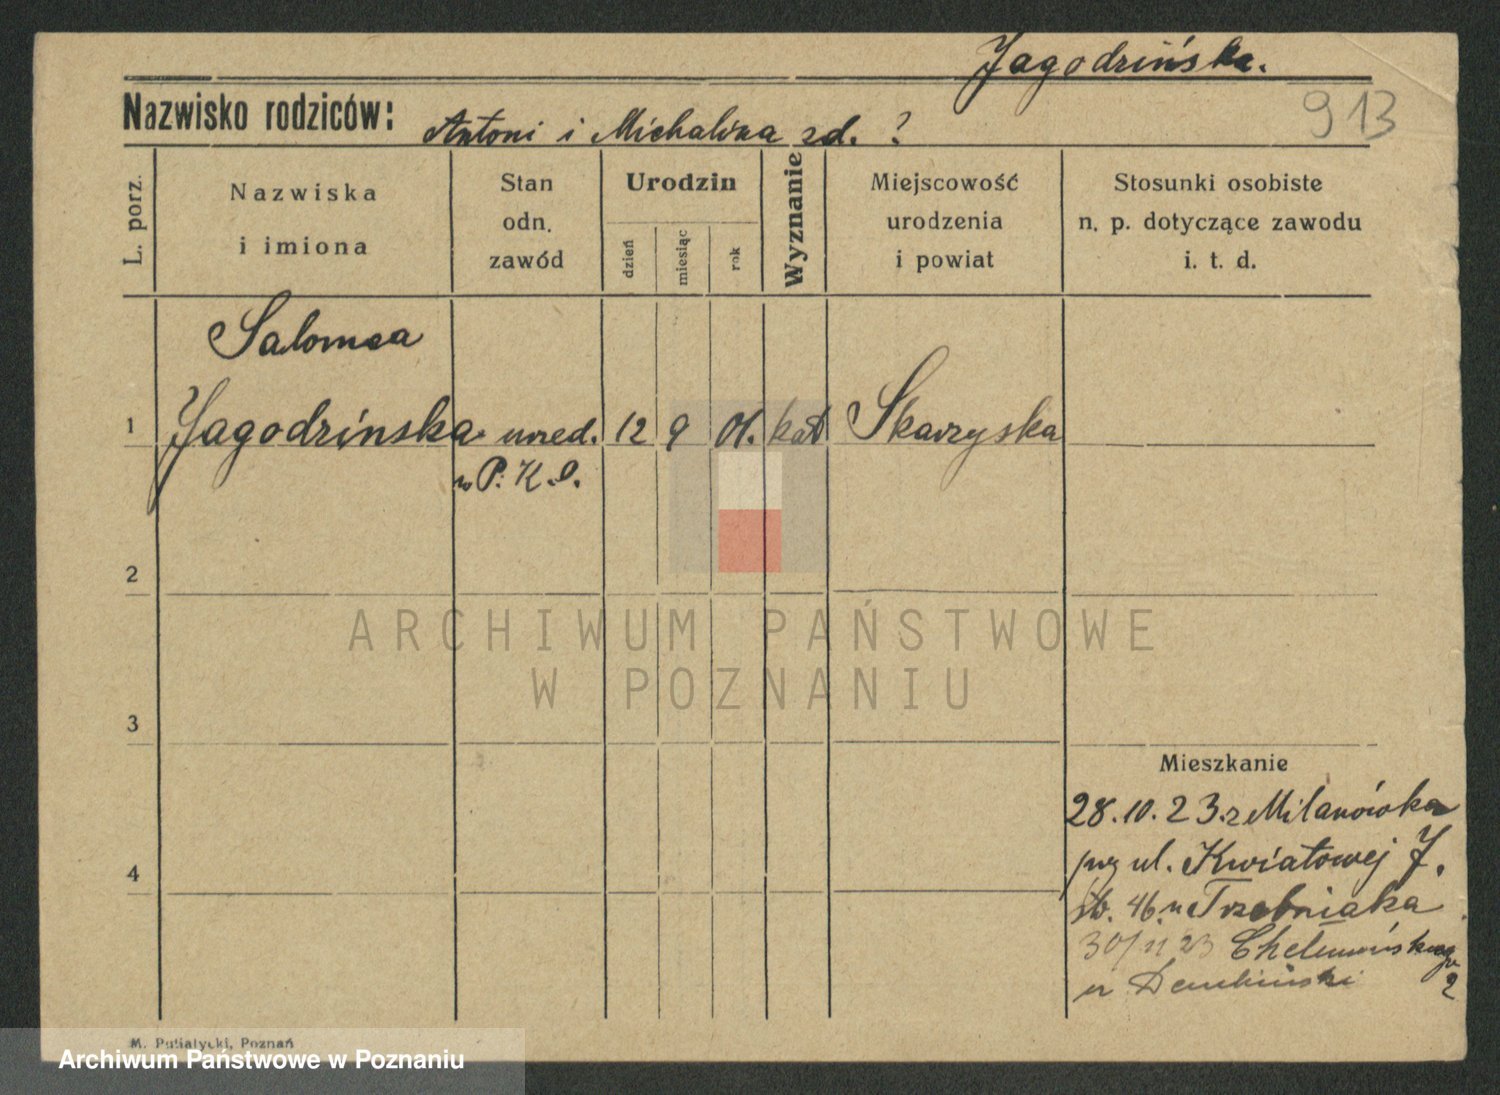 Jagodzińska.
Nazwisko rodziców: Antoni i Michalina zd. ?
913
L. porz.
Nazwiska
i imiona
Stan
odn.
zawód
Urodzin
dzień
miesiąc
rok
Wyznanie
Miejscowość
urodzenia
i powiat
Stosunki osobiste
n. p. dotyczące zawodu
i. t. d.
Salomea
1 Jagodzinska urzed. 12 9 01. kat Skarzyska
w P. K. O.
2
ARCHIWUM PAŃSTWOWE
W POZNANIU
3
Mieszkanie
28.10.23. z Milanówka
przy ul. Kwiatowej J.
4
46. u Trzebniaka
30/11 23 Chełmońskiego
2
u Dembiński
M. Putiatycki, Poznań
Archiwum Państwowe w Poznaniu